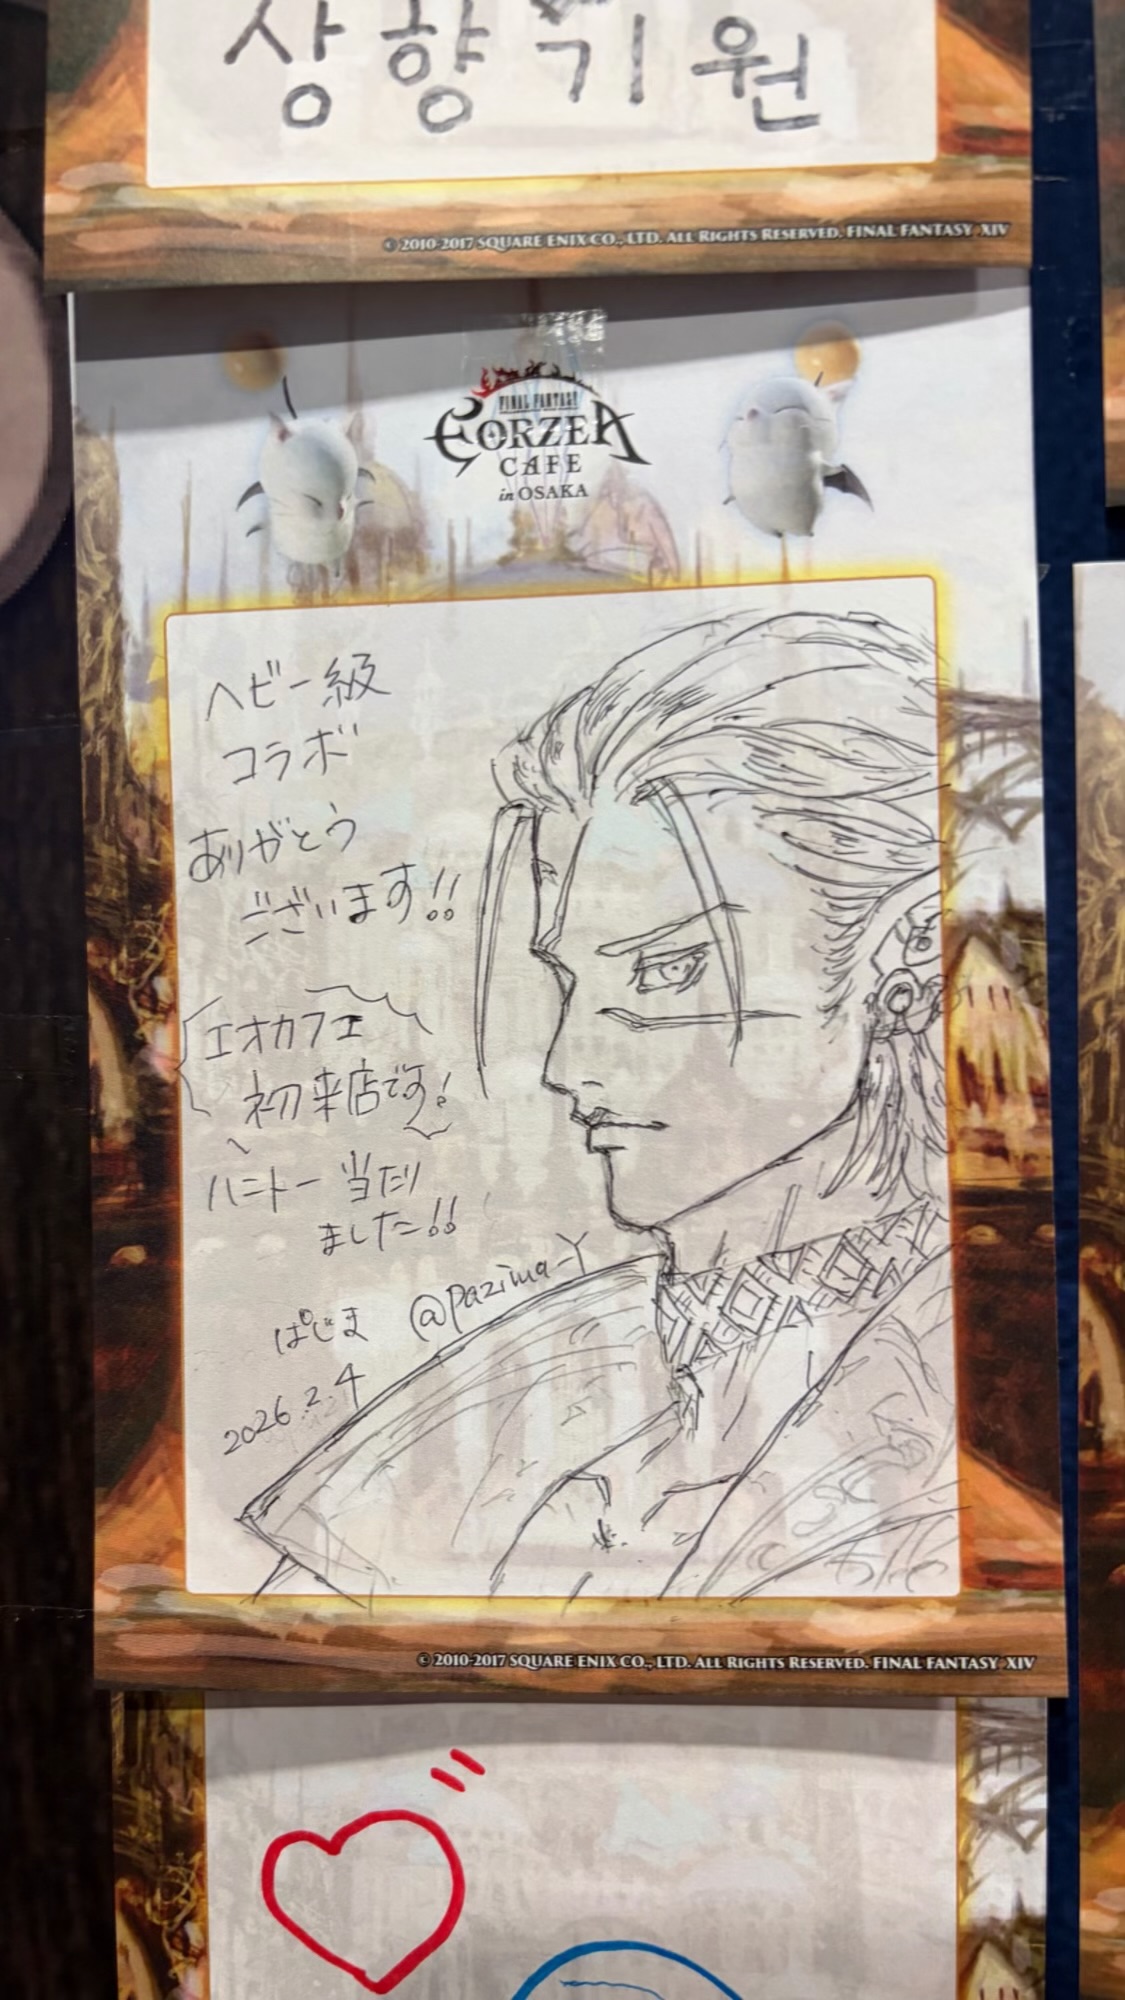 상향기원
© 2010-2017 SQUARE ENIX CO., LTD. ALL RIGHTS RESERVED. FINAL FANTASY XIV
FINAL FANTASY
EORZEA
CAFE
in OSAKA
ヘビー級
コラボ
ありがとう
ございます!!
エオカフェ
初来店です!
ハニトー当たり
ました!!
ぱじま @pazima_Y
2026.2.4
© 2010-2017 SQUARE ENIX CO., LTD. ALL RIGHTS RESERVED. FINAL FANTASY XIV